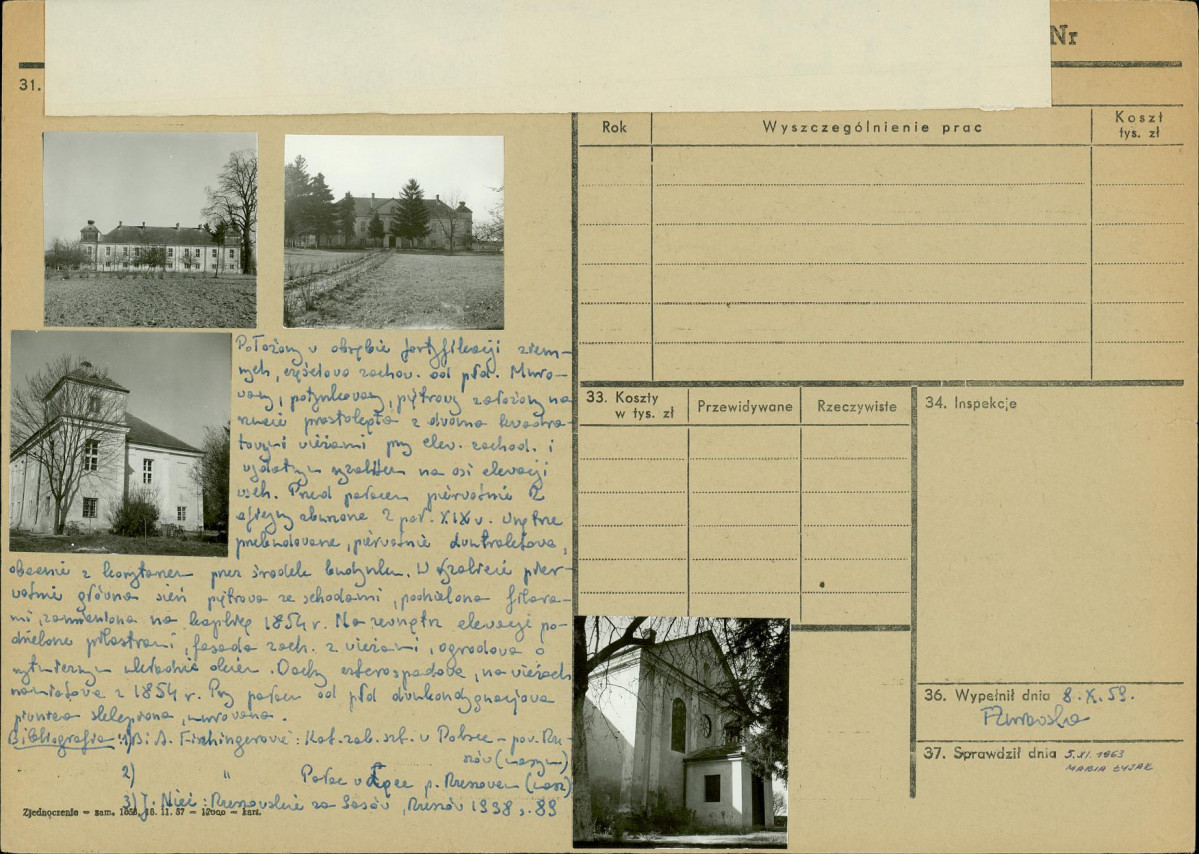 Nr
31.
Położony w obrębie fortyfikacji ziem-
nych, częściowo zachow. od płd. Muro-
wany, potynkowany, piętrowy założony na
rzucie prostokąta z dwoma kwadra-
towymi wieżami przy elew. zachod. i
wydatnym ryzalitem na osi elewacji
wsch. Przed pałacem pierwotnie 2
oficyny zburzone 2 poł. XIX w. Wnętrze
przebudowane, pierwotnie dwutraktowe,
obecnie z korytarzem przez środek budynku. W ryzalicie pier-
wotnie główna sień piętrowa ze schodami, podzielona filara-
mi, zamieniona na kaplicę 1854 r. Na zewnątrz elewacje po-
dzielone pilastrami, fasada zach. z wieżami, ogrodowa o
rytmicznym układzie okien. Dachy czterospadowe, na wieżach
namiotowe z 1854 r. Przy pałacu od płd dwukondygnacjowa
piwnica sklepiona, murowana.
Bibliografia: 1) B. i A. Fischingerowie: Kat. zab. szt. w Polsce – pow. Rze-
szów (maszyn)
2) " Pałac w Łące p. Rzeszowem (masz)
3) J. Nieć: Rzeszowskie za Sasów, Rzeszów 1938 s. 89
Zjednoczenie – zam. 1858, 16. 11. 57 – 12000 – kart.
Rok
Wyszczególnienie prac
Koszt
tys. zł
33. Koszty
w tys. zł
Przewidywane
Rzeczywiste
34. Inspekcje
36. Wypełnił dnia 8.X.59.
37. Sprawdził dnia 5.XI.1963
MARIA ŁYJAK